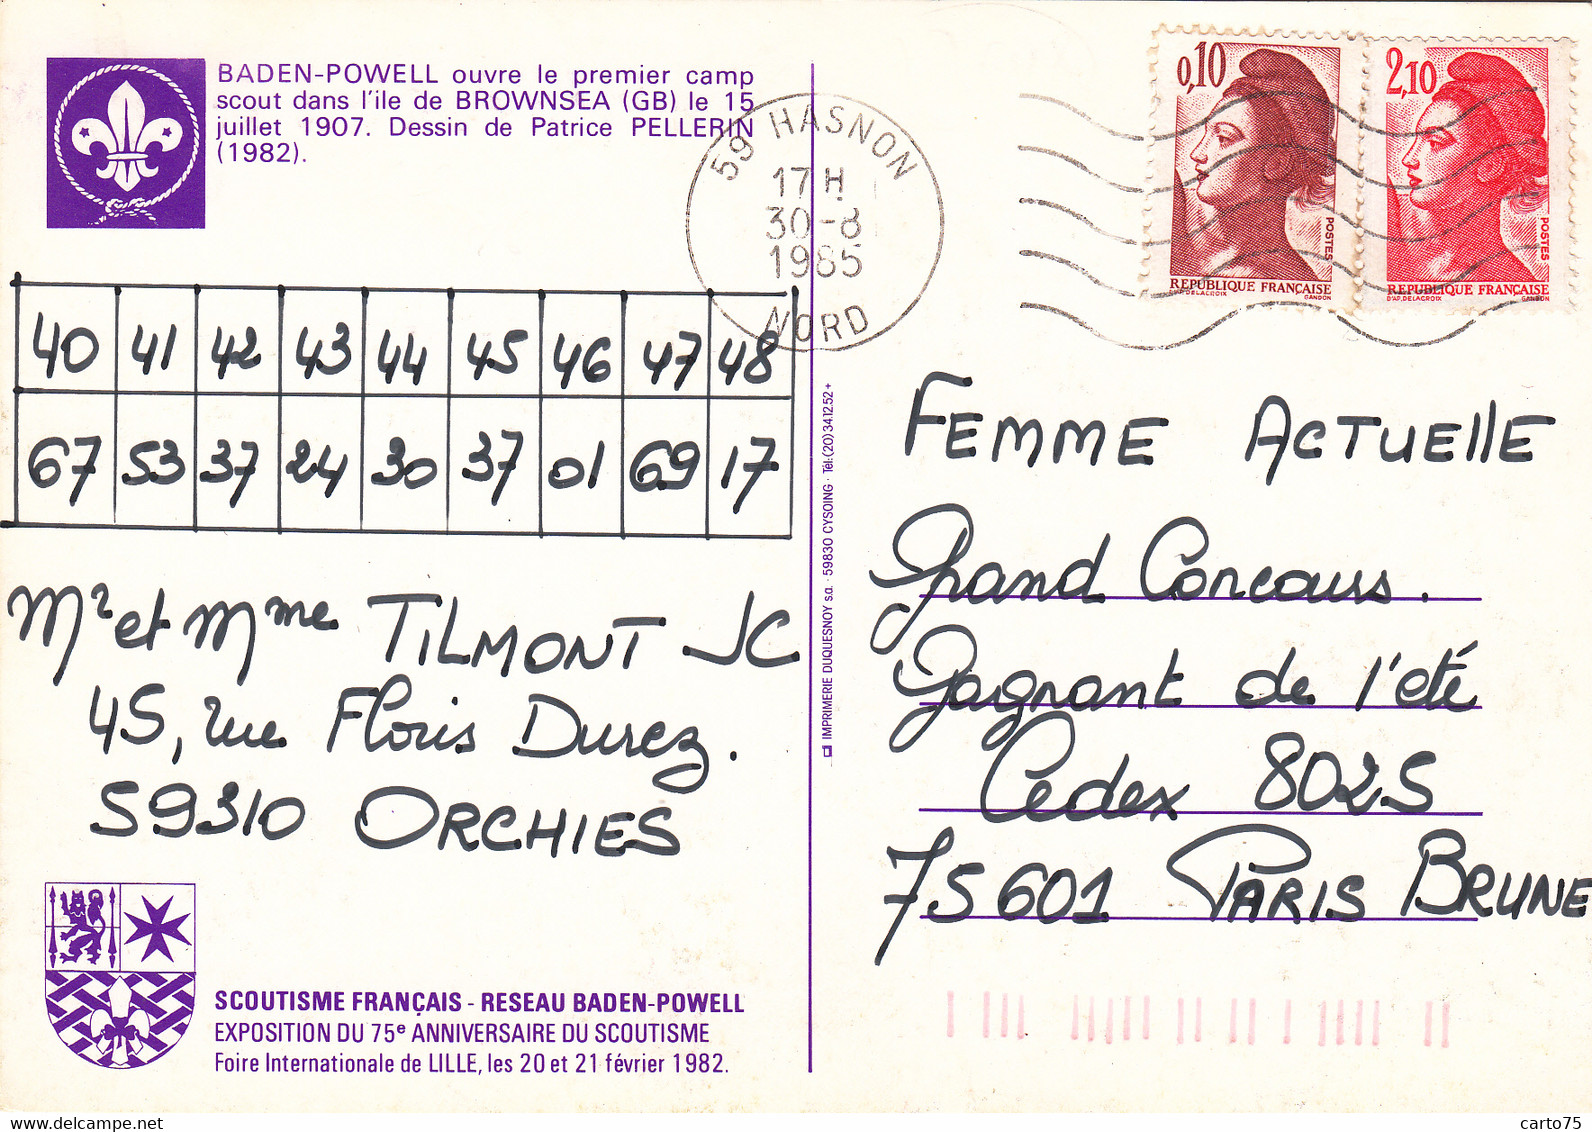 BADEN-POWELL ouvre le premier camp
scout dans l'ile de BROWNSEA (GB) le 15
juillet 1907. Dessin de Patrice PELLERIN
(1982).
59 HASNON
17 H
30-8
1985
NORD
0,10
POSTES
REPUBLIQUE FRANÇAISE
D'AP. DELACROIX GANDON
2,10
POSTES
REPUBLIQUE FRANÇAISE
D'AP. DELACROIX GANDON
40 41 42 43 44 45 46 47 48
67 53 37 24 30 37 01 69 17
Mr et Mme TILMONT JC
45, rue Floris Durez.
59310 ORCHIES
IMPRIMERIE DUQUESNOY s.a. · 59830 CYSOING · Tél: (20) 34.12.52 +
FEMME ACTUEllE
Grand Concours.
Gagnant de l'été
Cedex 8025
75601 PARIS BRUNE
SCOUTISME FRANÇAIS - RESEAU BADEN-POWELL
EXPOSITION DU 75e ANNIVERSAIRE DU SCOUTISME
Foire Internationale de LILLE, les 20 et 21 février 1982.
carto75